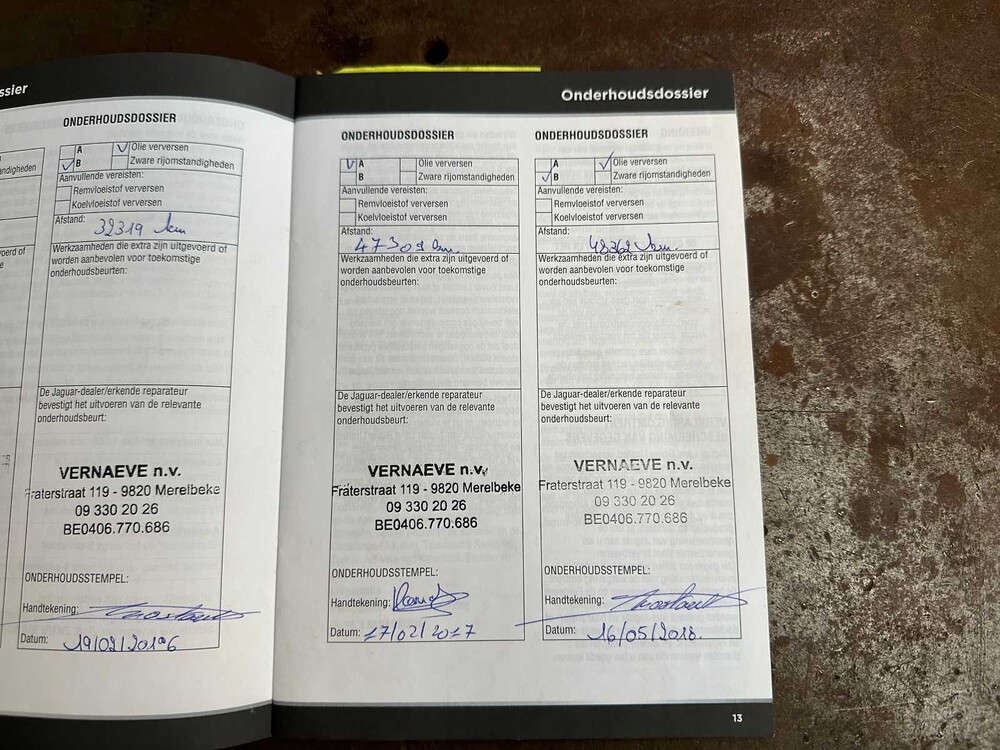 ssier
andigheden
oerd of
e
ONDERHOUDSDOSSIER
A
Olie verversen
B
Zware rijomstandigheden
Aanvullende vereisten:
Remvloeistof verversen
Koelvloeistof verversen
Afstand:
32319 km
Werkzaamheden die extra zijn uitgevoerd of
worden aanbevolen voor toekomstige
onderhoudsbeurten:
De Jaguar-dealer/erkende reparateur
bevestigt het uitvoeren van de relevante
onderhoudsbeurt:
VERNAEVE n.v.
Fraterstraat 119 - 9820 Merelbeke
09 330 20 26
BE0406.770.686
ONDERHOUDSSTEMPEL:
Handtekening:
Datum: 19/02/2016
Onderhoudsdossier
ONDERHOUDSDOSSIER
A
Olie verversen
B
Zware rijomstandigheden
Aanvullende vereisten:
Remvloeistof verversen
Koelvloeistof verversen
Afstand:
47309 km
Werkzaamheden die extra zijn uitgevoerd of
worden aanbevolen voor toekomstige
onderhoudsbeurten:
De Jaguar-dealer/erkende reparateur
bevestigt het uitvoeren van de relevante
onderhoudsbeurt:
VERNAEVE n.v.
Fraterstraat 119 - 9820 Merelbeke
09 330 20 26
BE0406.770.686
ONDERHOUDSSTEMPEL:
Handtekening:
Datum: 17/02/2017
ONDERHOUDSDOSSIER
A
Olie verversen
B
Zware rijomstandigheden
Aanvullende vereisten:
Remvloeistof verversen
Koelvloeistof verversen
Afstand:
48362 km.
Werkzaamheden die extra zijn uitgevoerd of
worden aanbevolen voor toekomstige
onderhoudsbeurten:
De Jaguar-dealer/erkende reparateur
bevestigt het uitvoeren van de relevante
onderhoudsbeurt:
VERNAEVE n.v.
Fraterstraat 119 - 9820 Merelbeke
09 330 20 26
BE0406.770.686
ONDERHOUDSSTEMPEL:
Handtekening:
Datum: 16/05/2018.
13